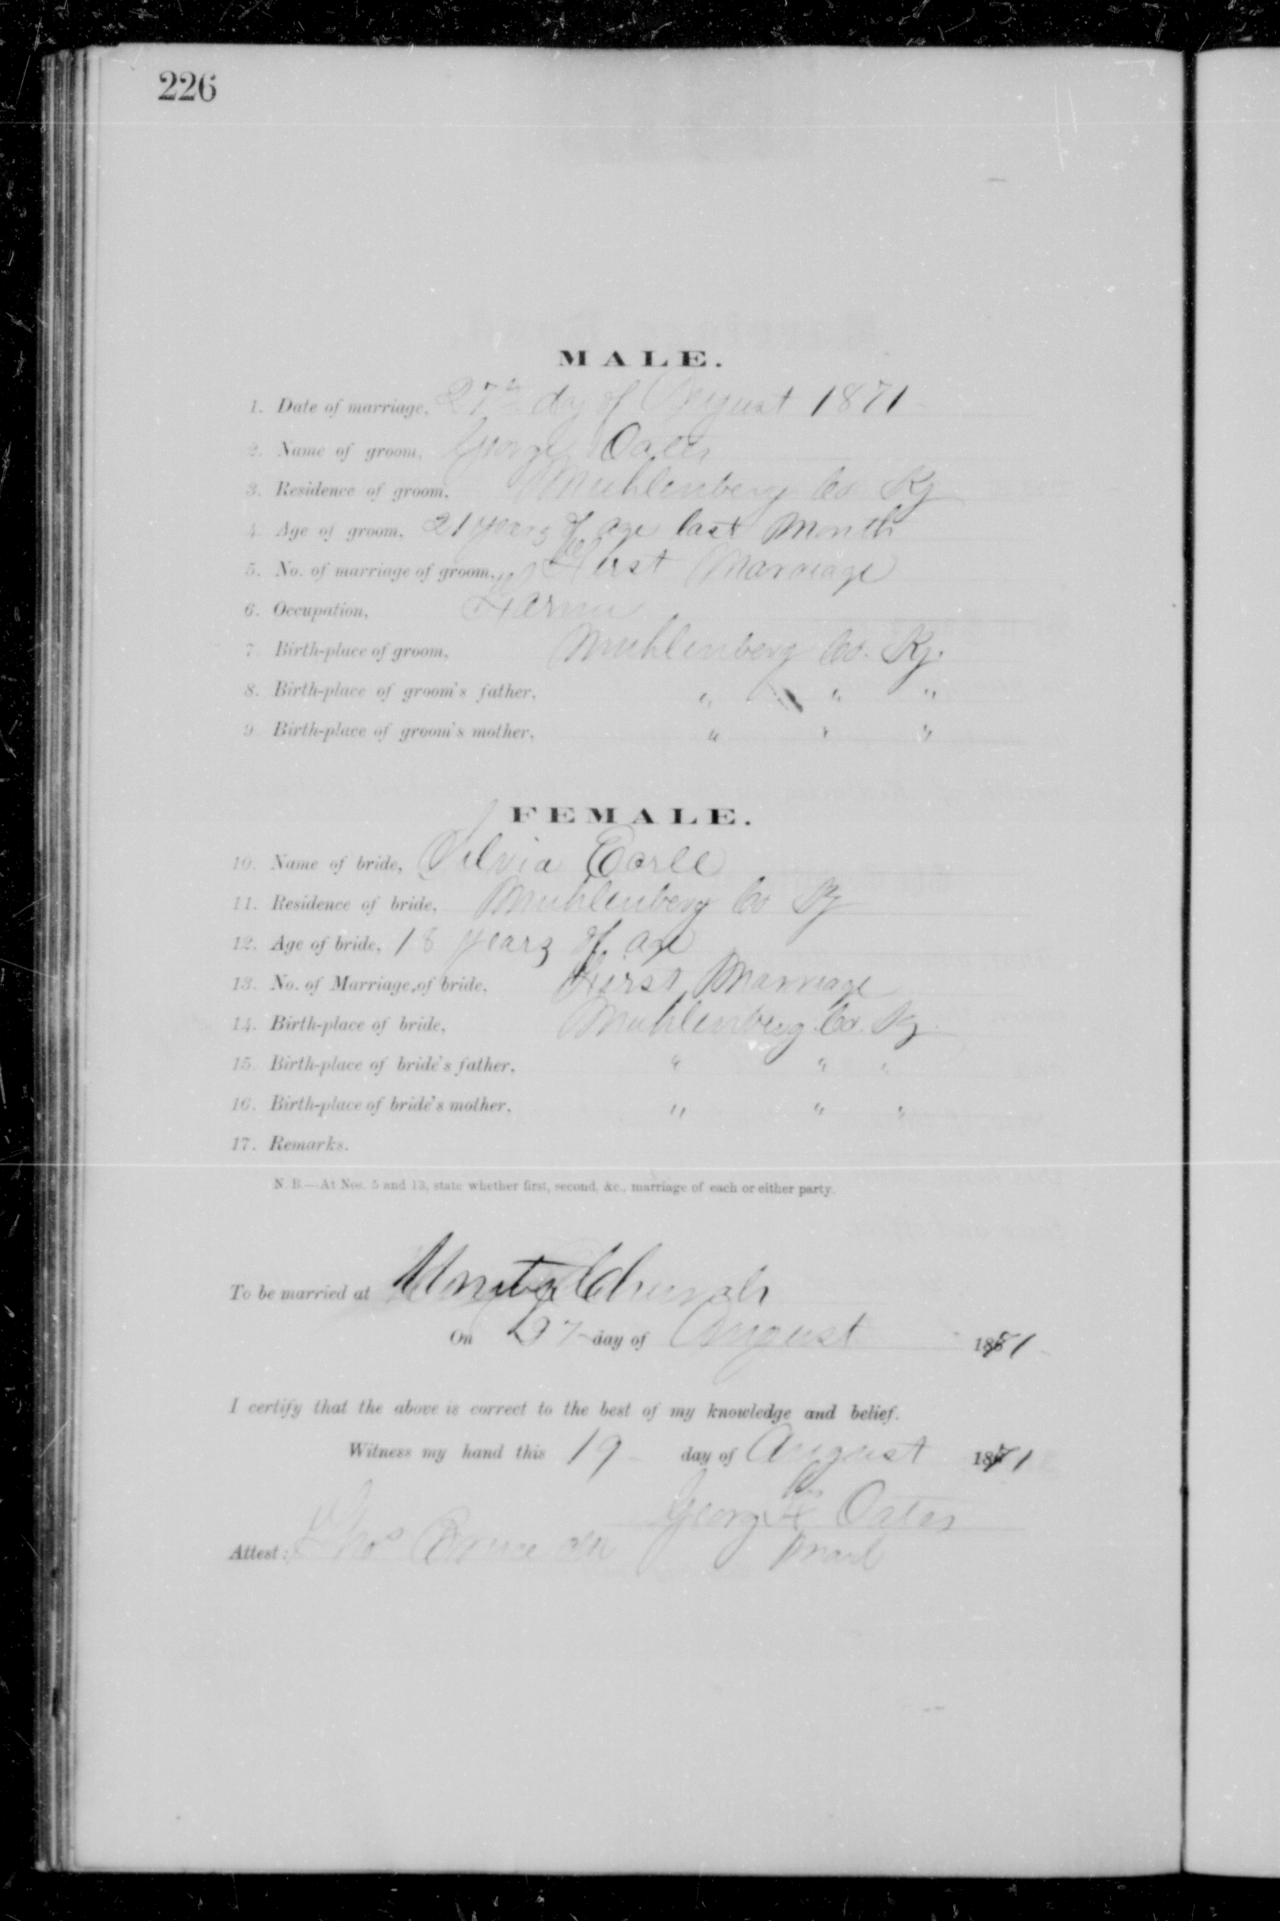 226
MALE.
1. Date of marriage, 27th day of August 1871
2. Name of groom, George Oates
3. Residence of groom, Muhlenberg Co Ky
4. Age of groom, 21 years of age last Month
5. No. of marriage of groom, First Marriage
6. Occupation, Farmer
7. Birth-place of groom, Muhlenberg Co. Ky.
8. Birth-place of groom's father, " " "
9. Birth-place of groom's mother, " " "
FEMALE.
10. Name of bride, Silvia Earle
11. Residence of bride, Muhlenberg Co Ky
12. Age of bride, 18 years of age
13. No. of Marriage of bride, First Marriage
14. Birth-place of bride, Muhlenberg Co. Ky.
15. Birth-place of bride's father, " " "
16. Birth-place of bride's mother, " " "
17. Remarks.
N. B.—At Nos. 5 and 13, state whether first, second, &c., marriage of each or either party.
To be married at Church
On 27 day of August 1871
I certify that the above is correct to the best of my knowledge and belief.
Witness my hand this 19 day of August 1871
George Oates
Attest: Thos Bruce mark